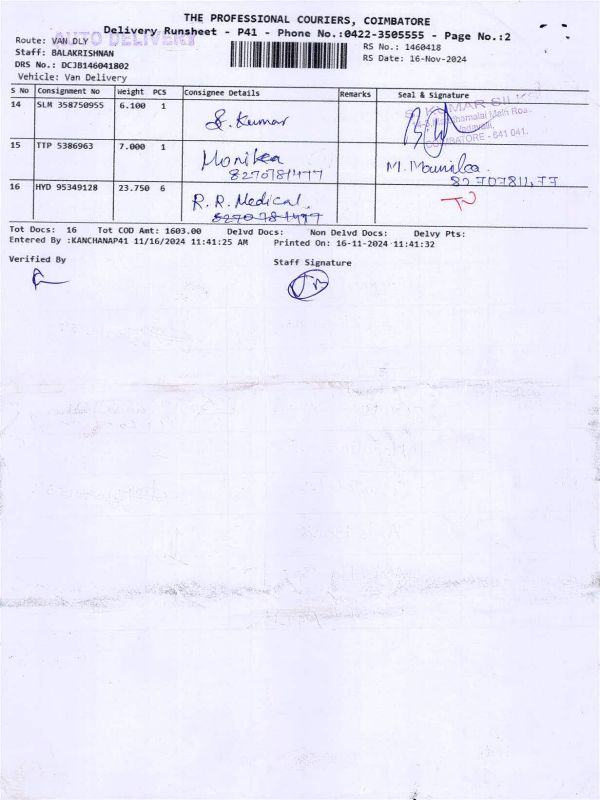 THE PROFESSIONAL COURIERS, COIMBATORE
Delivery Runsheet - P41 - Phone No.:0422-3505555 - Page No.:2
AUTO DELIVERY
Route: VAN DLY
RS No.: 1460418
Staff: BALAKRISHNAN
RS Date: 16-Nov-2024
DRS No.: DCJB146041802
Vehicle: Van Delivery
S No Consignment No Weight PCS Consignee Details Remarks Seal & Signature
14 SLM 358750955 6.100 1
S. Kumar
KUMAR SILK
COIMBATORE - 641 041.
15 TTP 5386963 7.000 1
Monika
8270781477
M. Mounika
16 HYD 95349128 23.750 6
R. R. Medical.
Tot Docs: 16 Tot COD Amt: 1603.00 Delvd Docs: Non Delvd Docs: Delvy Pts:
Entered By :KANCHANAP41 11/16/2024 11:41:25 AM Printed On: 16-11-2024 11:41:32
Verified By Staff Signature